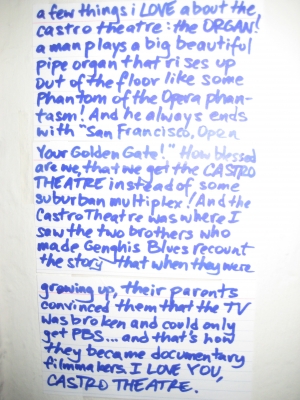 a few things i LOVE about the
castro theatre: the ORGAN!
a man plays a big beautiful
pipe organ that rises up
out of the floor like some
Phantom of the Opera phan-
tasm! And he always ends
with "San Francisco, Open
Your Golden Gate!" How blessed
are we, that we get the CASTRO
THEATRE instead of some
suburban multiplex! And the
Castro Theatre was where I
saw the two brothers who
made Genghis Blues recount
the story that when they were
growing up, their parents
convinced them that the TV
was broken and could only
get PBS... and that's how
they became documentary
filmmakers. I LOVE YOU,
CASTRO THEATRE.